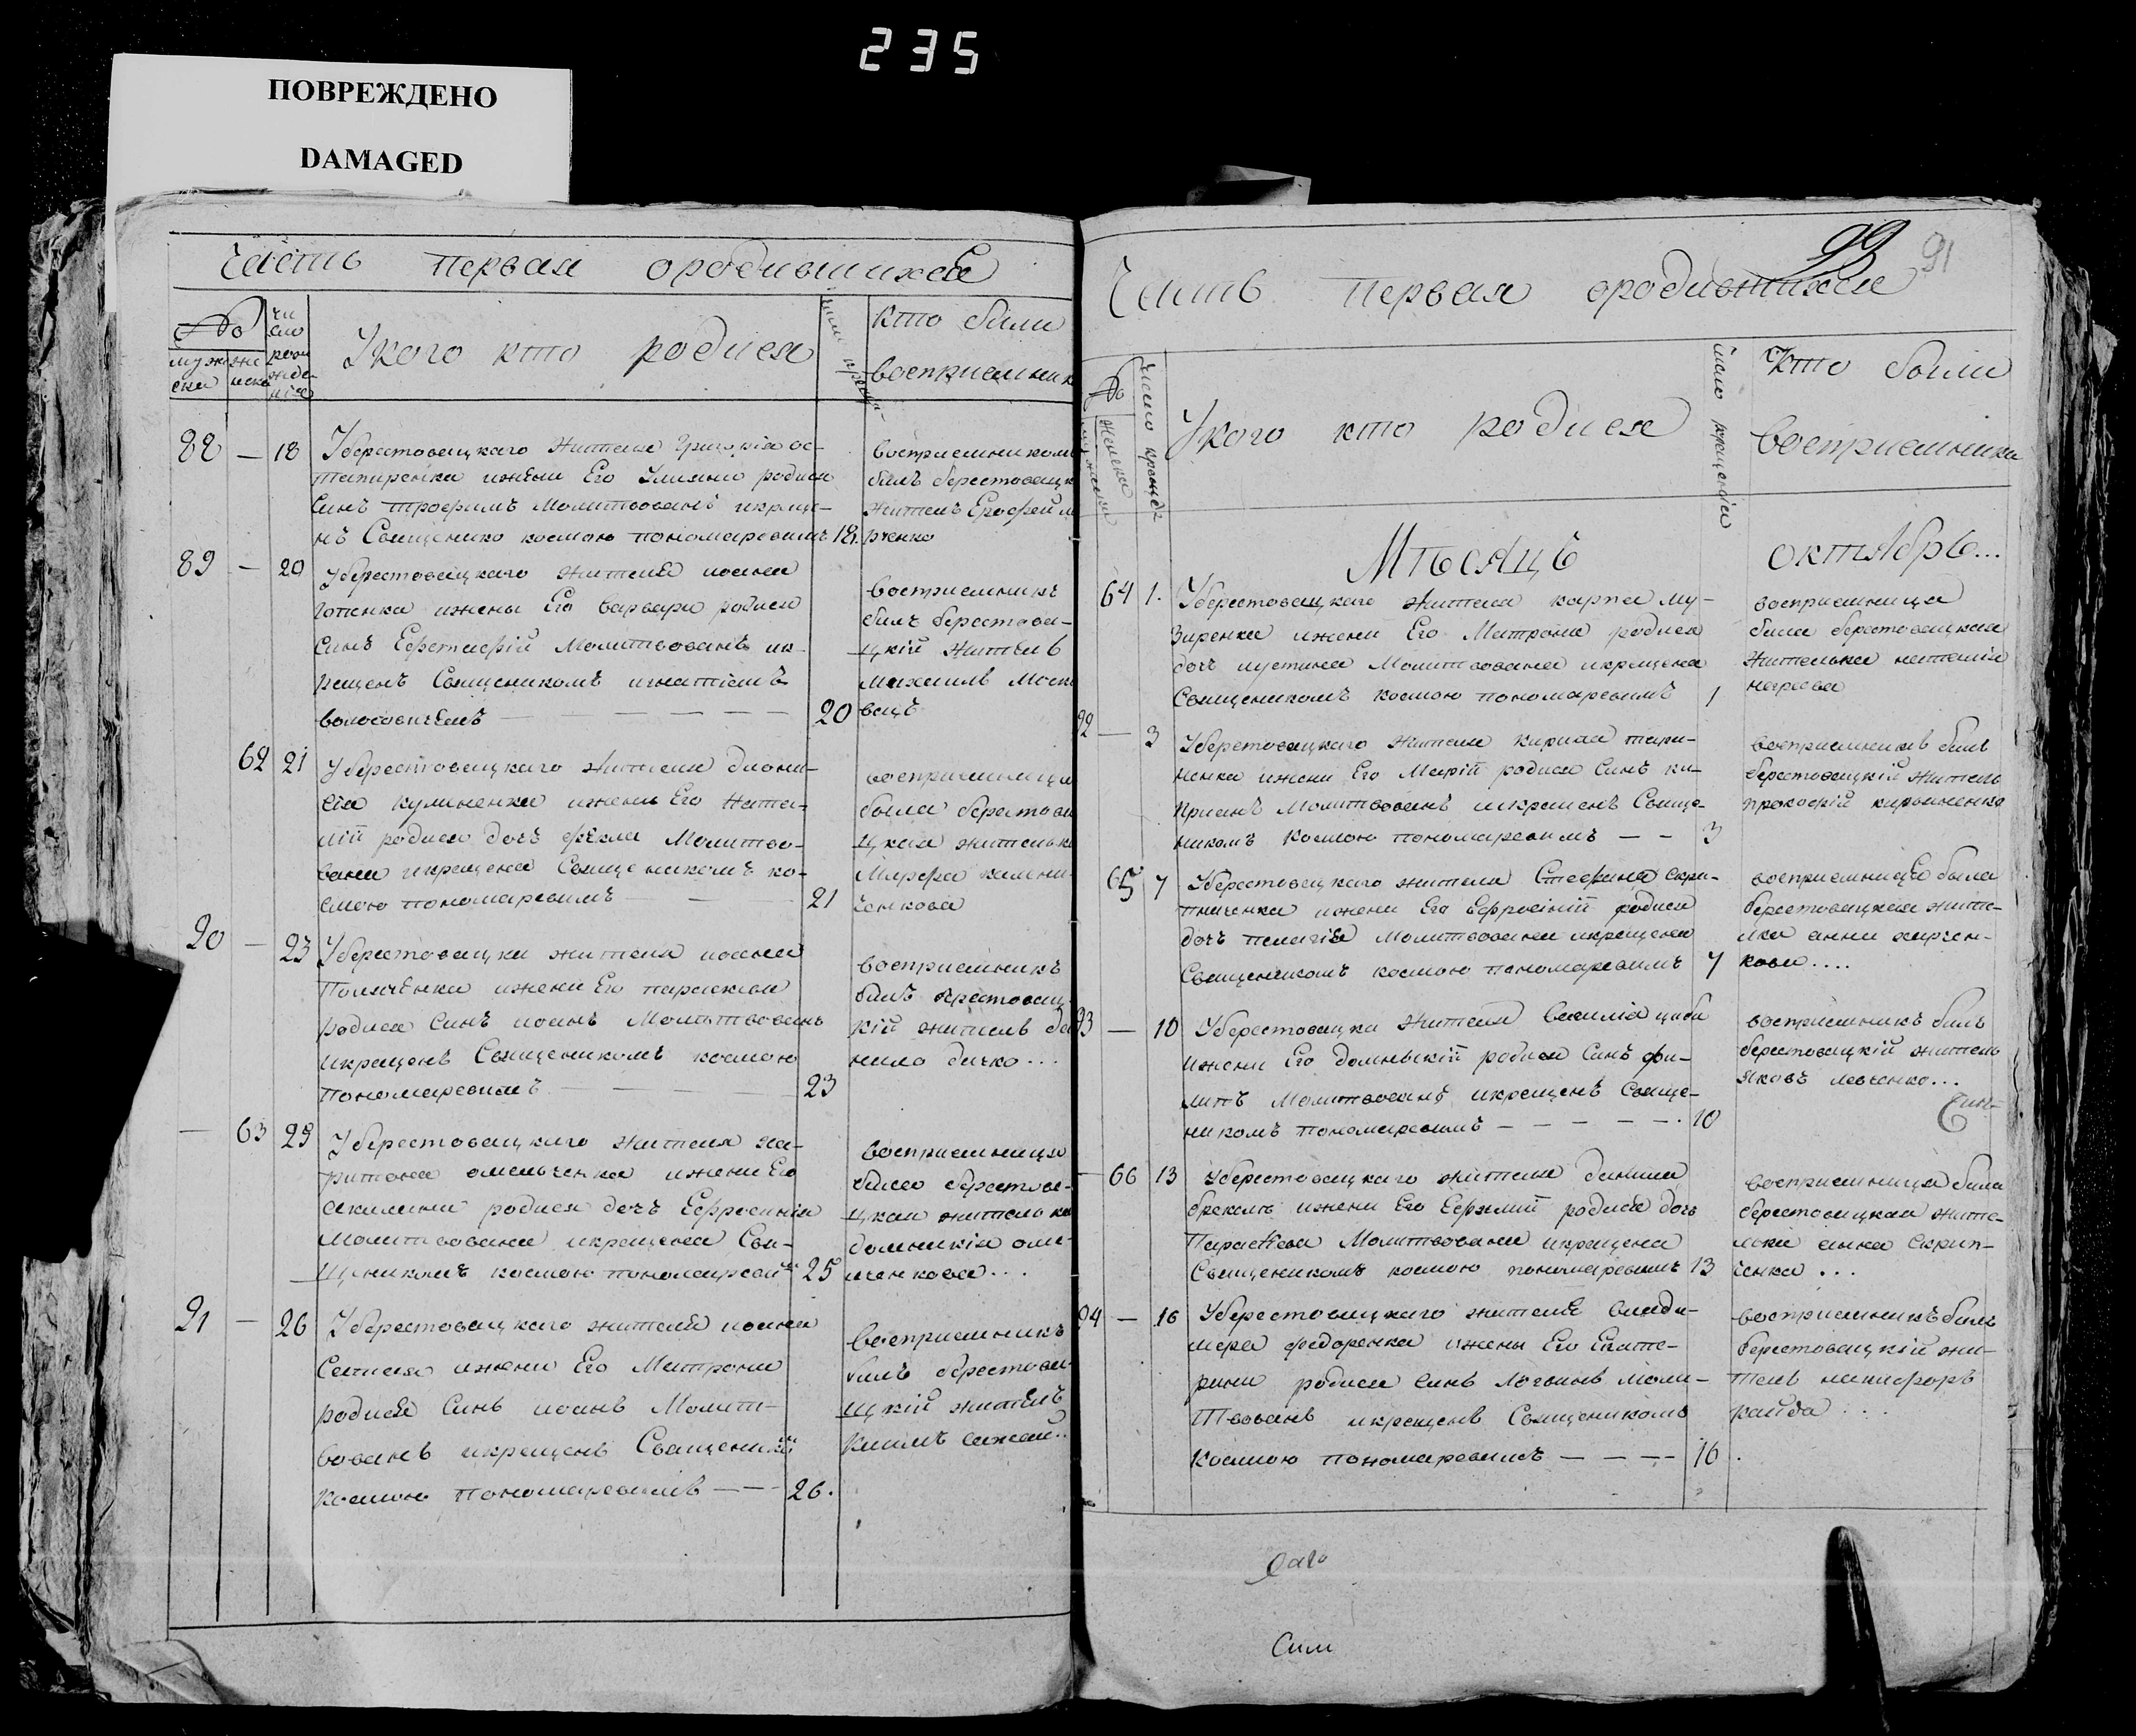 235
ПОВРЕЖДЕНО
DAMAGED
Часть первая ородившихся
№
муж
ски
жи
нска
чи
сло
рож
жде
нія
Укого кто родися
кто били
восприемник
88 — 18 Уберестовецкаго жителя Григорія ос-
тапиренка ижени Его Улияни родися
Синъ трофимъ Молитвованъ икрще-
нъ Свищенико космою пономаревимъ 18.
восприемникомъ
билъ берестовецк
житель Ерофей м
рченко
89 — 20 Уберестовецкаго жителя иоана
готенка ижены Его варвари родися
Синъ Ефстафій Молитвованъ ик-
рещенъ Свищеникомъ игнатіемъ
волосовичемъ — — — — — 20
восприемникъ
билъ берестове-
цкій житель
михаилъ Моск
вецъ
62 21 Уберестовецкаго жителя диони-
сія кулиненка ижени Его Ната-
лій родися дочъ фекла Молитво-
вана икрещена Свищеникомъ ко-
смою пономаревимъ — — — 21
восприемница
била берестове
цкая жителька
Марфа калени-
ченкова
90 — 23 Уберестовецки жителя иоана
Полячёнка ижени Его параскеви
родися Синъ иоанъ Молитвованъ
икрещенъ Свищеникомъ космою
Пономаревимъ — — — — 23
восприемникъ
билъ берестовец
кій житель да
нило дичко...
— 63 25 Уберестовецкаго жителя ха-
ритона омельченка ижени Его
акилини родися дочъ Ефросинія
Молитвована икрещена Сви-
щеникомъ космою пономаревимъ 25
восприемница
била берестове-
цкая жителька
домникія оме-
лченкова...
91 — 26 Уберестовецкаго жителя иоана
Сипися ижени Его Матрони
родися Синъ иоанъ Молит-
вованъ икрещенъ Свищеникомъ
Космою Пономаревимъ — — — 26.
Восприемникъ
билъ берестове
цкій житель
Климъ сижки..
99 91
Часть первая ородившихся
№
женска
число крещен
Укого кто родися
число крещенія
Кто были
Восприемники
Мѣсяцъ октябрь...
64 1. Уберестовецкаго жителя карпа му-
зиренка ижени Его Матрони родися
дочъ иустина Молитвована икрещена
Свищеникомъ Космою пономаревимъ 1
восприемница
била берестовецкая
жителька наталія
нагреева
92 — 3 Уберестовецкаго жителя кирила тара-
ненка ижени Его Марій родися Синъ ки-
приянъ Молитвованъ икрещенъ Свище-
никомъ Космою пономаревимъ — — 3
восприемникъ билъ
берестовецкій житель
прокофій кирьяненко
65 7 Уберестовецкаго жителя Стефана скри-
пниченка ижени Его Ефросіній родися
дочъ пелагія Молитвована икрещена
Свищеникомъ космою пономаревимъ 7
восприемница была
берестовецкая жите-
лка анна харчен-
кова....
93 — 10 Уберестовецки жителя Василія циби
ижени Его домникій родися Синъ фи-
липъ Молитвованъ икрещенъ Свище-
никомъ пономаревимъ — — — — — . 10
восприемникъ билъ
берестовецкій житель
Яковъ левченко...
— 66 13 Уберестовецкаго жителя данила
брехомъ ижени Его Ефимій родися дочъ
Параскева Молитвована икрещена
Свищеникомъ космою пономаревимъ 13
восприемница била
берестовецкая жите-
лька анна скрип-
ченка...
94 — 16 Уберестовецкаго жителя влади-
мера федоренка ижены Его Екате-
рини родися Синъ Логвинъ моли-
твованъ икрещенъ Свищеникомъ
Космою пономаревимъ — — — — 16.
восприемникъ билъ
берестовецкій жи-
тель никифоръ
райда...
Сим